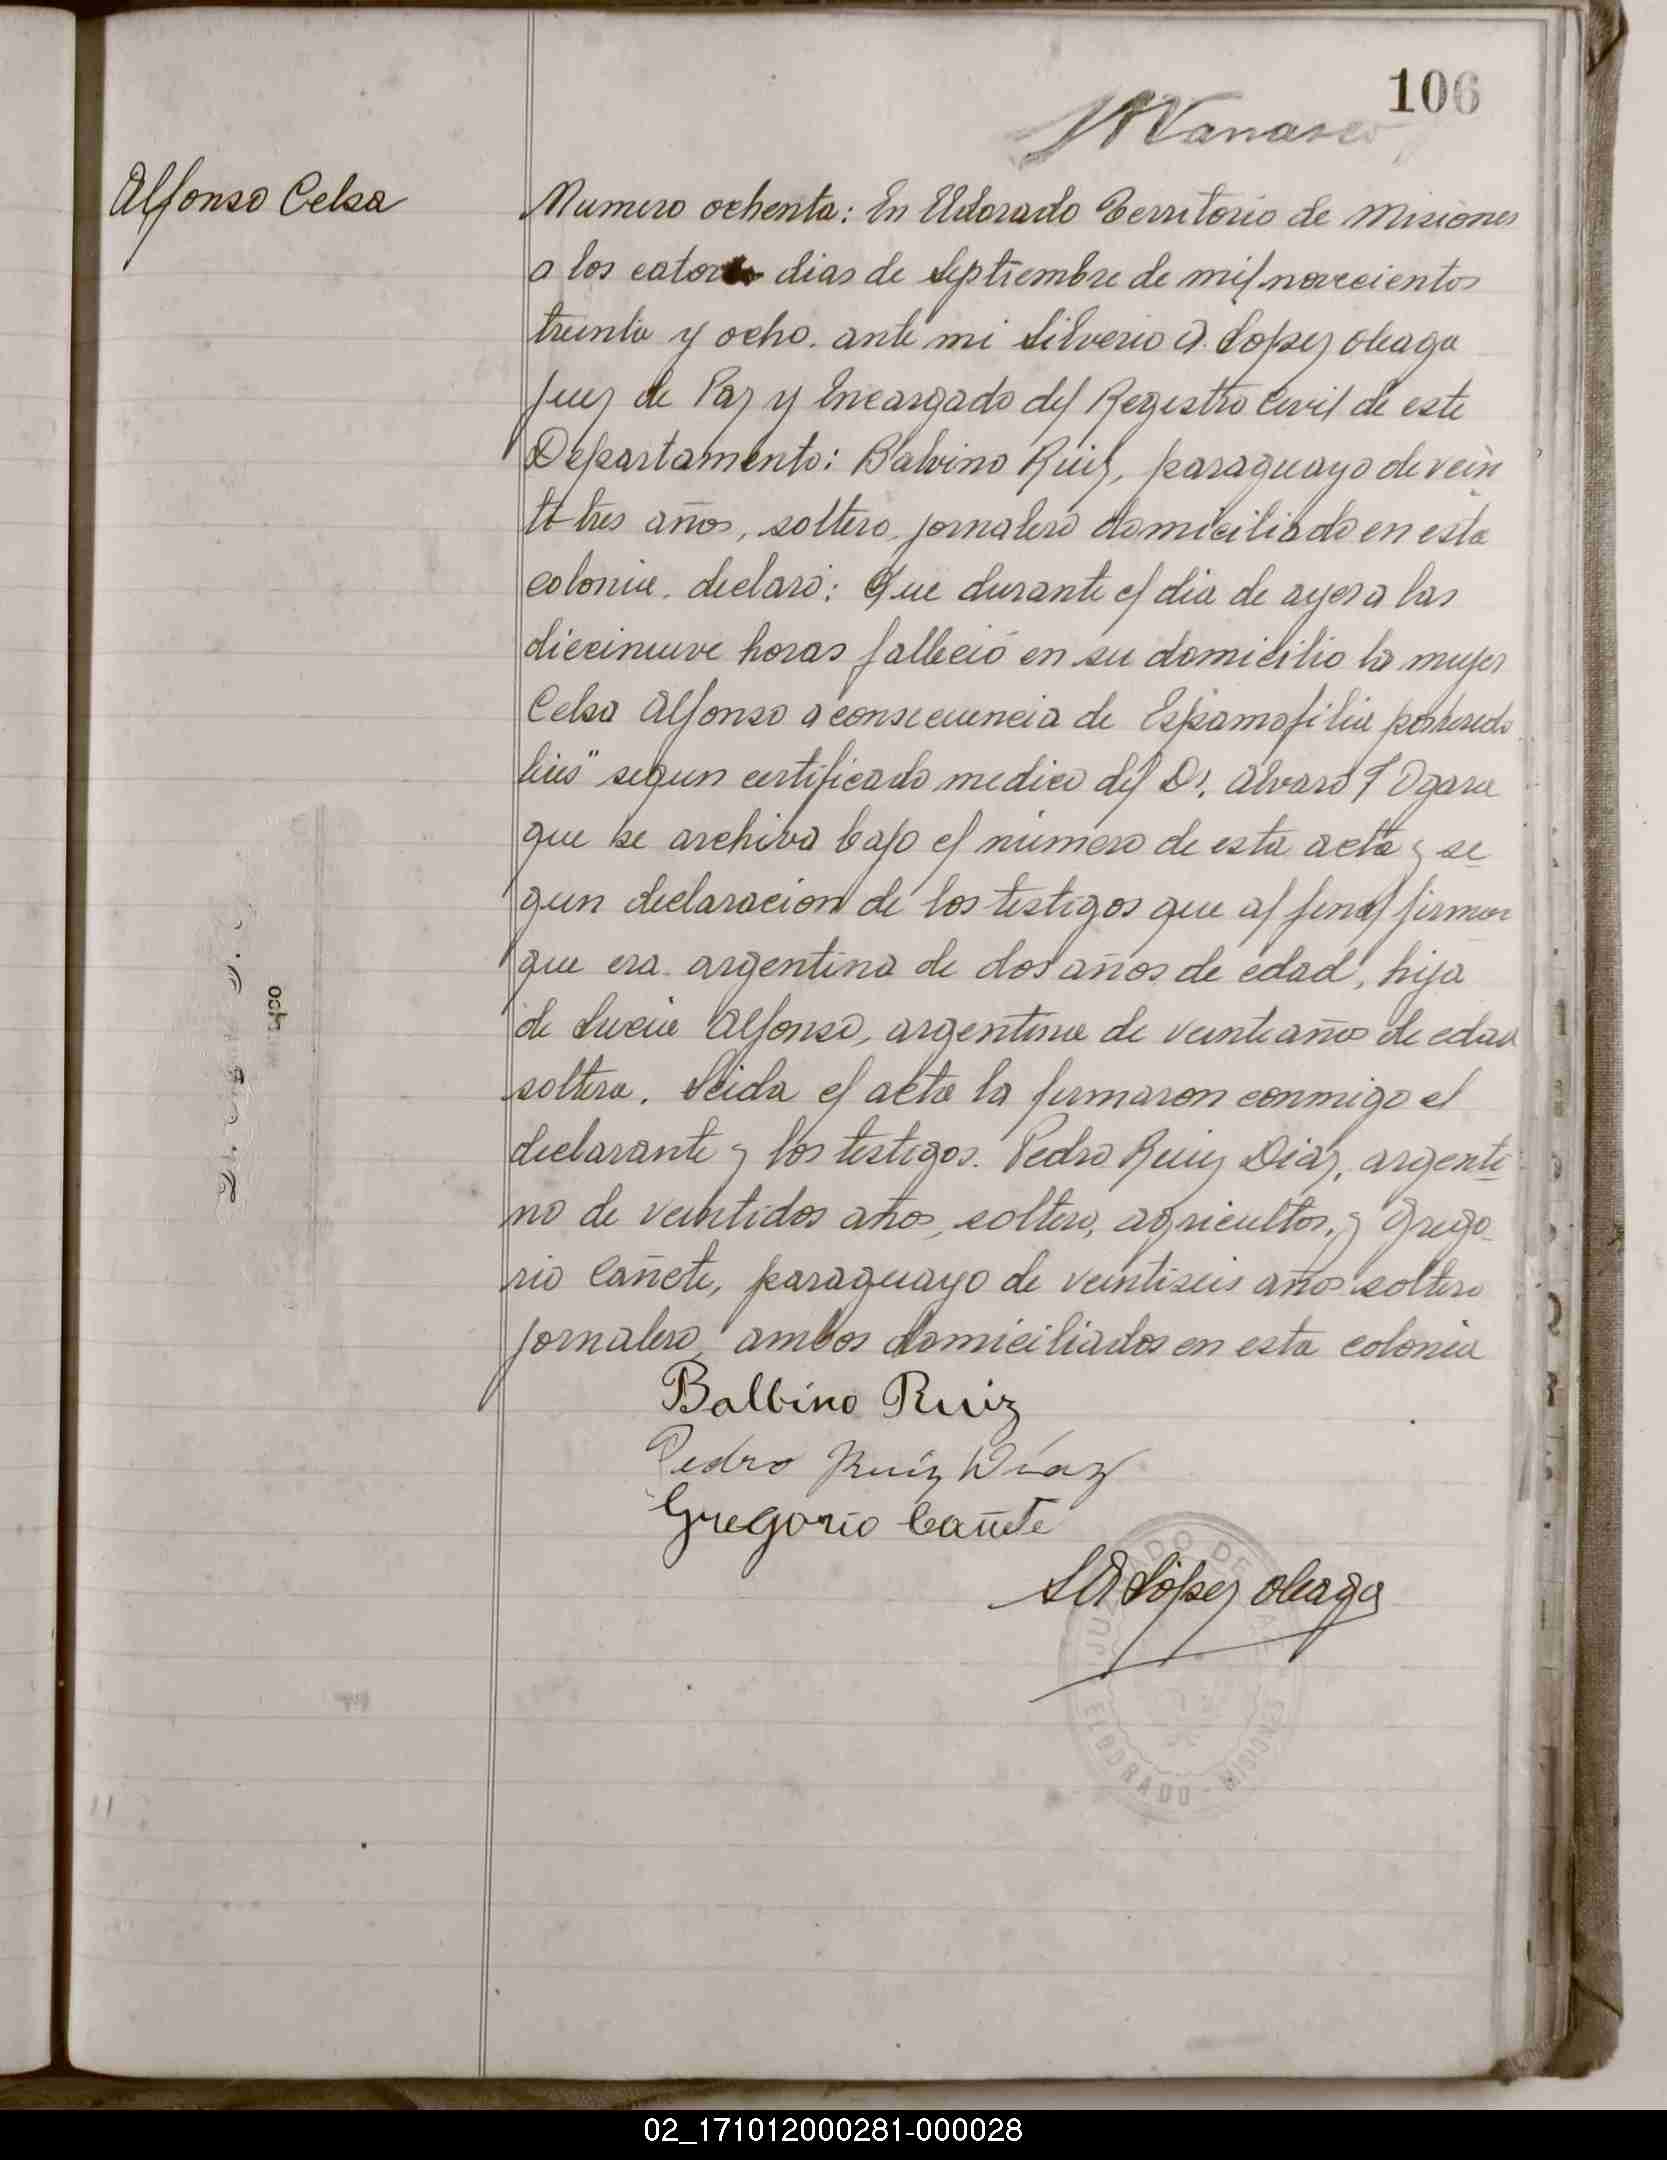 106
Alfonso Celsa
Numero ochenta: En Eldorado Territorio de Misiones
a los catorce dias de Septiembre de mil novecientos
treinta y ocho. ante mi Silverio A. Lopez Oleaga
Juez de Paz y Encargado del Registro Civil de este
Departamento: Balvino Ruiz, paraguayo de vein
ti tres años, soltero, jornalero domiciliado en esta
colonia. declaró: Que durante el dia de ayer a las
diecinueve horas falleció en su domicilio la mujer
Celsa Alfonso a consecuencia de Espamofilia por heredo
lues" segun certificado medico del Dr. Alvaro T Ogara
que se archiva bajo el número de esta acta y se
gun declaracion de los testigos que al final firman
que era argentina de dos años de edad, hija
de Lucia Alfonso, argentina de veinte años de edad
soltera. Leida el acta la firmaron conmigo el
declarante y los testigos. Pedro Ruiz Diaz, argenti
no de veintidos años, soltero, agricultor, y Grego
rio Cañete, paraguayo de veintiseis años soltero
jornalero, ambos domiciliados en esta colonia
Balbino Ruiz
Pedro Ruíz Díaz
Gregorio Cañete
S A López Oleaga
JUZGADO DE PAZ
ELDORADO - MISIONES
02_171012000281-000028